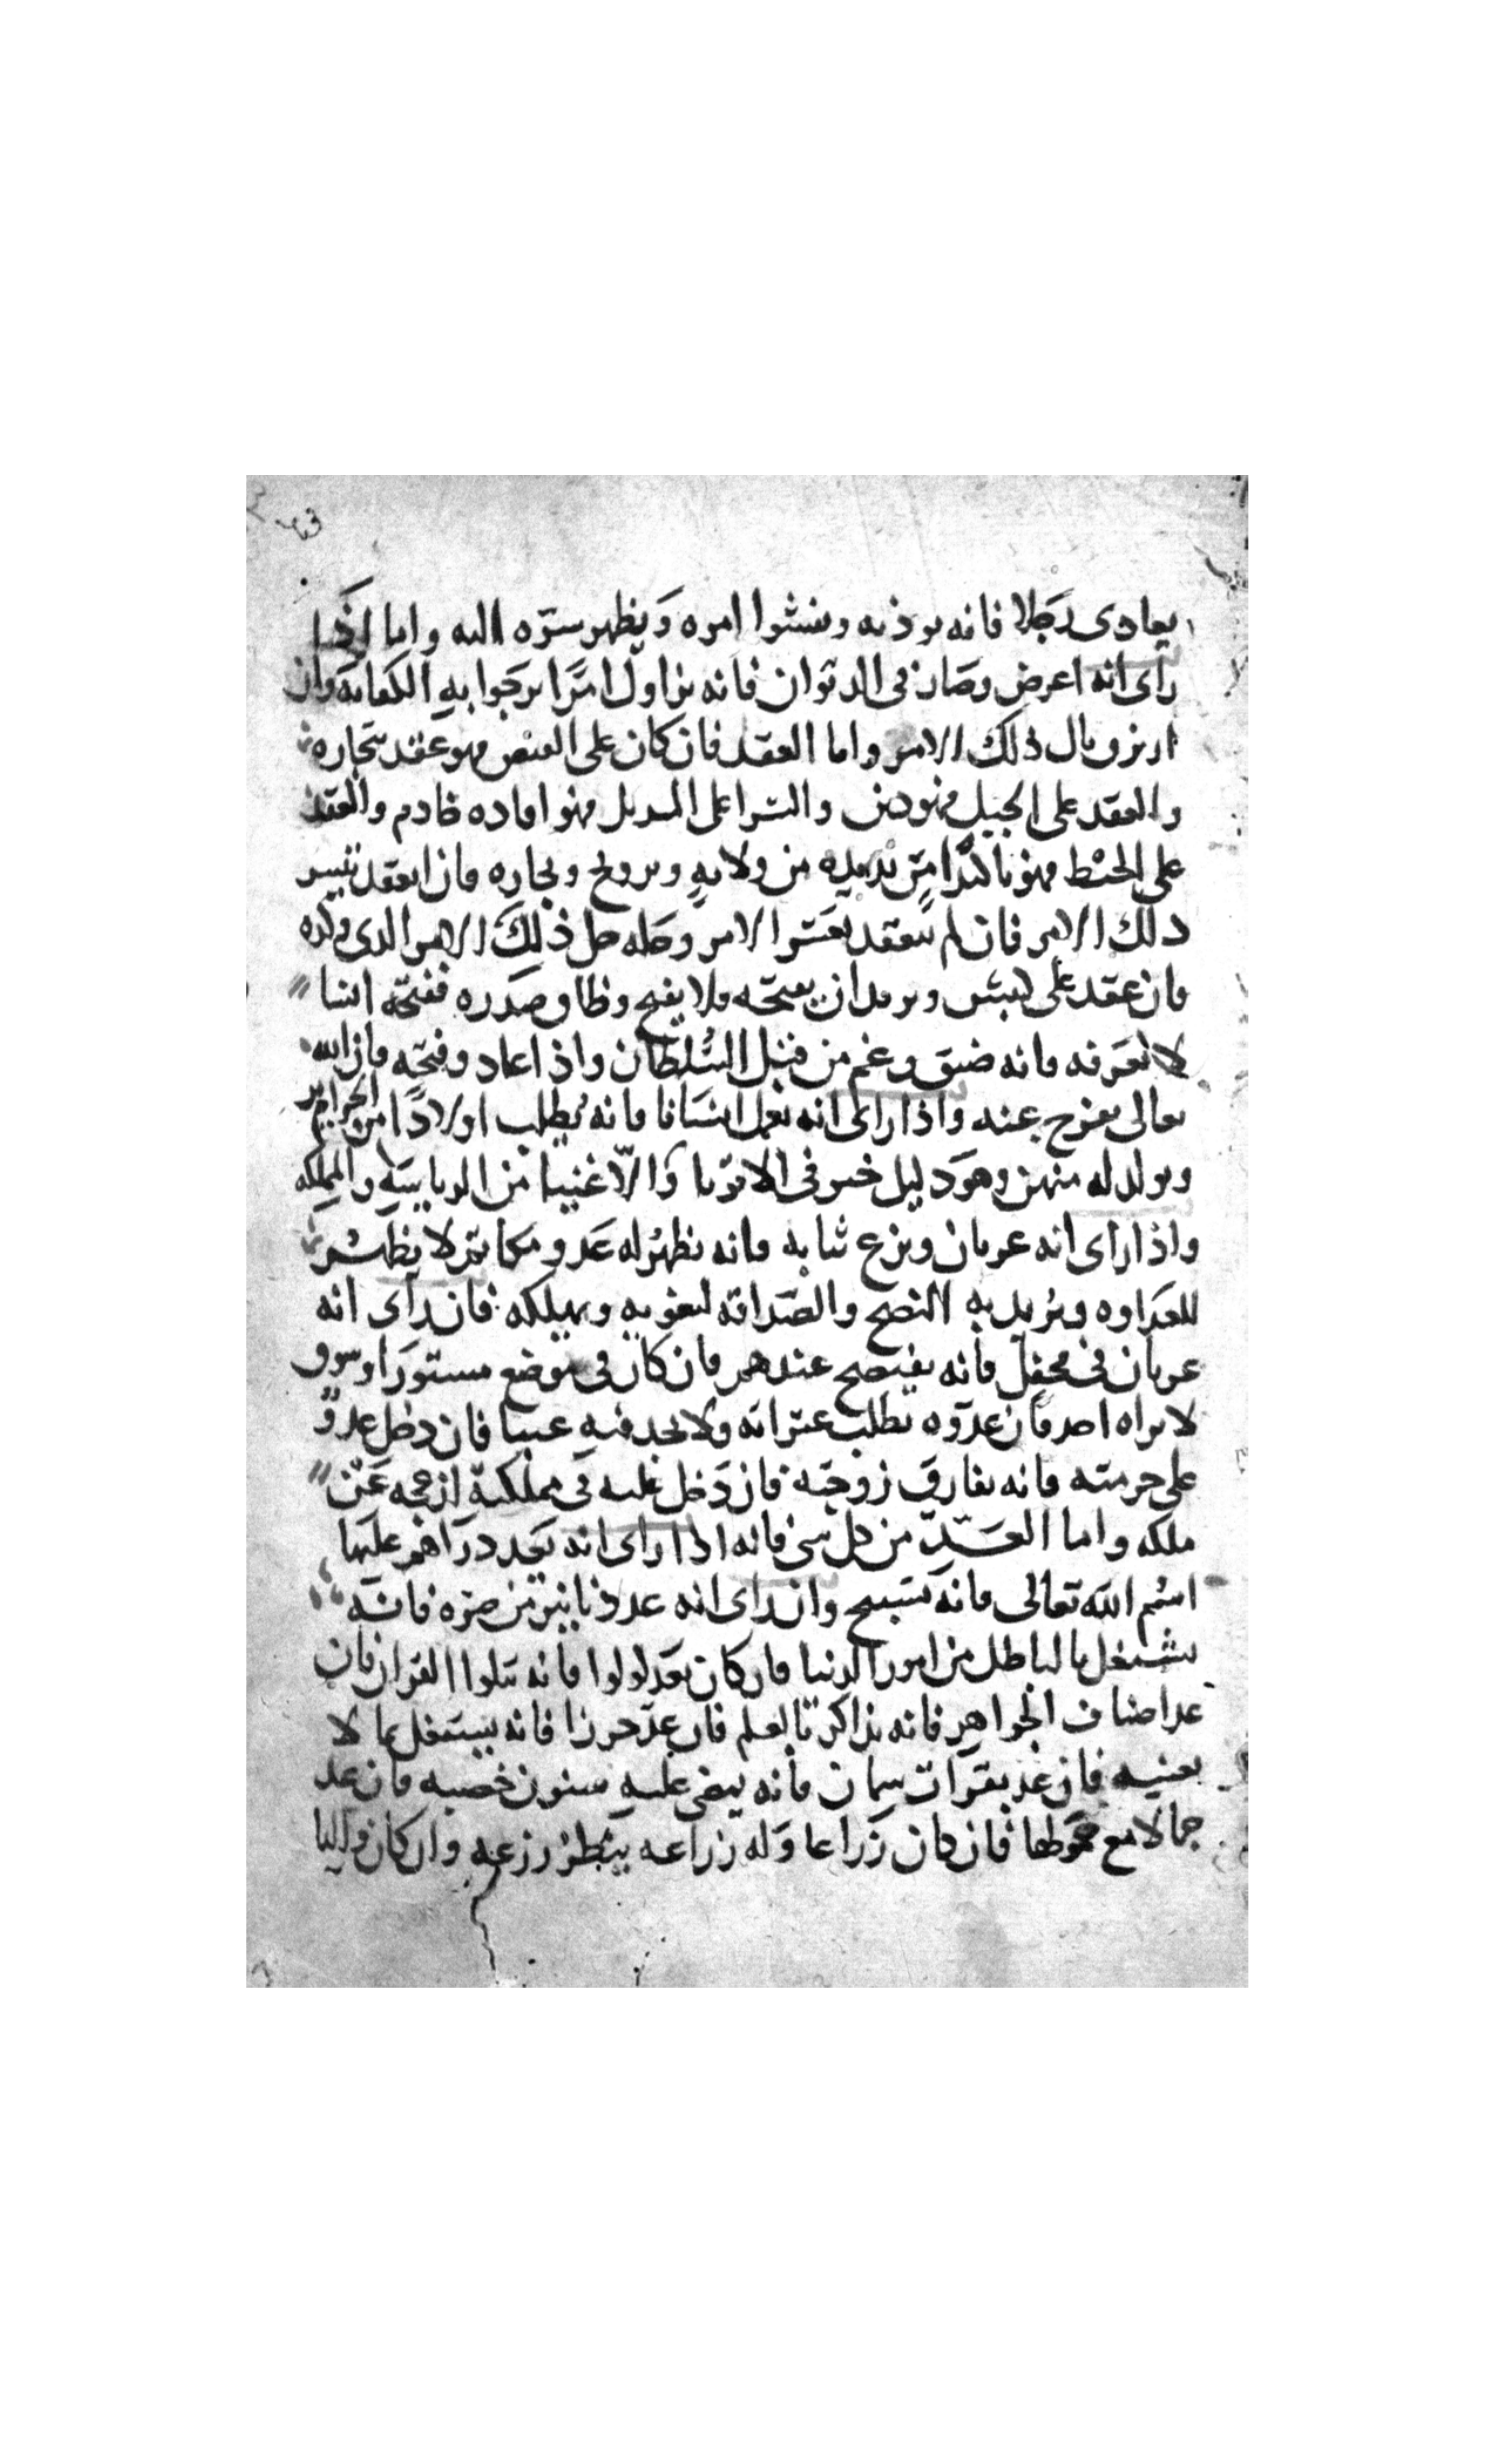 يعادي رجلا فانه يوذيه ويفشوا امره ويظهر ستره اليه واما اذا
رأى انه اعرض وصار في الديوان فانه يزاول امرا يرجوا به الكفاية وان
ذلك الامر واما العقد فان كان على القميص فهو عقد تجارة
والعقد على الحبل فهو دين والسرا على المنديل فهو افاده خادم والعقد
على الخيط فهو من ولاية وتزويج وتجاره فان انعقد تيسر
ذلك الامر فان لم ينعقد تعسر الامر وحله حل ذلك الامر الذي
فان عقد على ويريد ان يفتحه فلا يفتح وضاق صدره ففتحه انسا
لا نعرفه فانه ضيق وغم من قبل السلطان واذا عاد وفتحه فان الله
تعالى يفرج عنه واذا راى انه انسانا فانه يطلب اولادا من الحراير
ويولد له منهن وهو دليل خير في الاقويا والاغنيا من الرياسة والمملكه
واذا راى انه عريان ونزع ثيابه فانه يظهر له عدو مكاتم لا يظهر
للعداوه ويريد به النصح والصداقه ويهلكه فان رأى انه
عريان في محفل فانه يفتضح عندهم فان كان في موضع مستورا وسوق
لا يراه احد فان عدوه يطلب عثراته ولا يجد فيه عيبا فان دخل عدو
على حرمته فانه يفارق زوجته فان دخل عليه في مملكته ازعجه عن
ملكه واما العد من كل شي فانه اذا راى انه يعد دراهم عليها
اسم الله تعالى فانه يسبح وان راى انه عد دنانير من صره فانه
يشتغل بالباطل من امور الدنيا فان كان يعد لولوا فانه يتلوا القران فان
عد اصناف الجواهر فانه يذاكر بالعلم فان عد خرزا فانه يشتغل بما لا
يعنيه فان عد بقرات سمان فانه يمضي عليه سنون خصبه فان عد
جمالا مع فان كان زراعا وله زراعه ينظر زرعه وان كان واليا